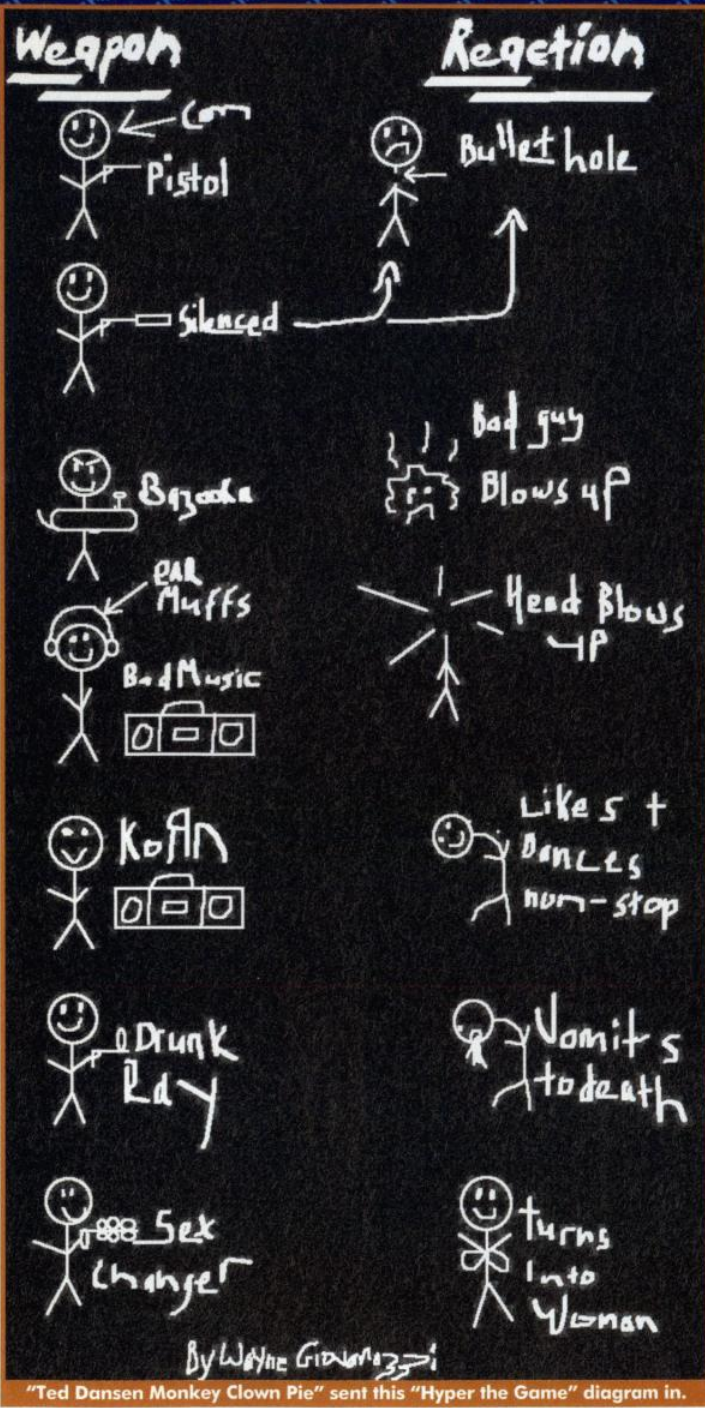 Weapon
Reaction
Com
Pistol
Bullet hole
Silenced
Bazooka
Bad guy
Blows up
EAR
Muffs
Bad Music
Head Blows
up
KoЯn
Likes +
Dances
num-stop
Drunk
Ray
Vomits
to death
Sex
Changer
turns
Into
Woman
By Wayne
"Ted Dansen Monkey Clown Pie" sent this "Hyper the Game" diagram in.